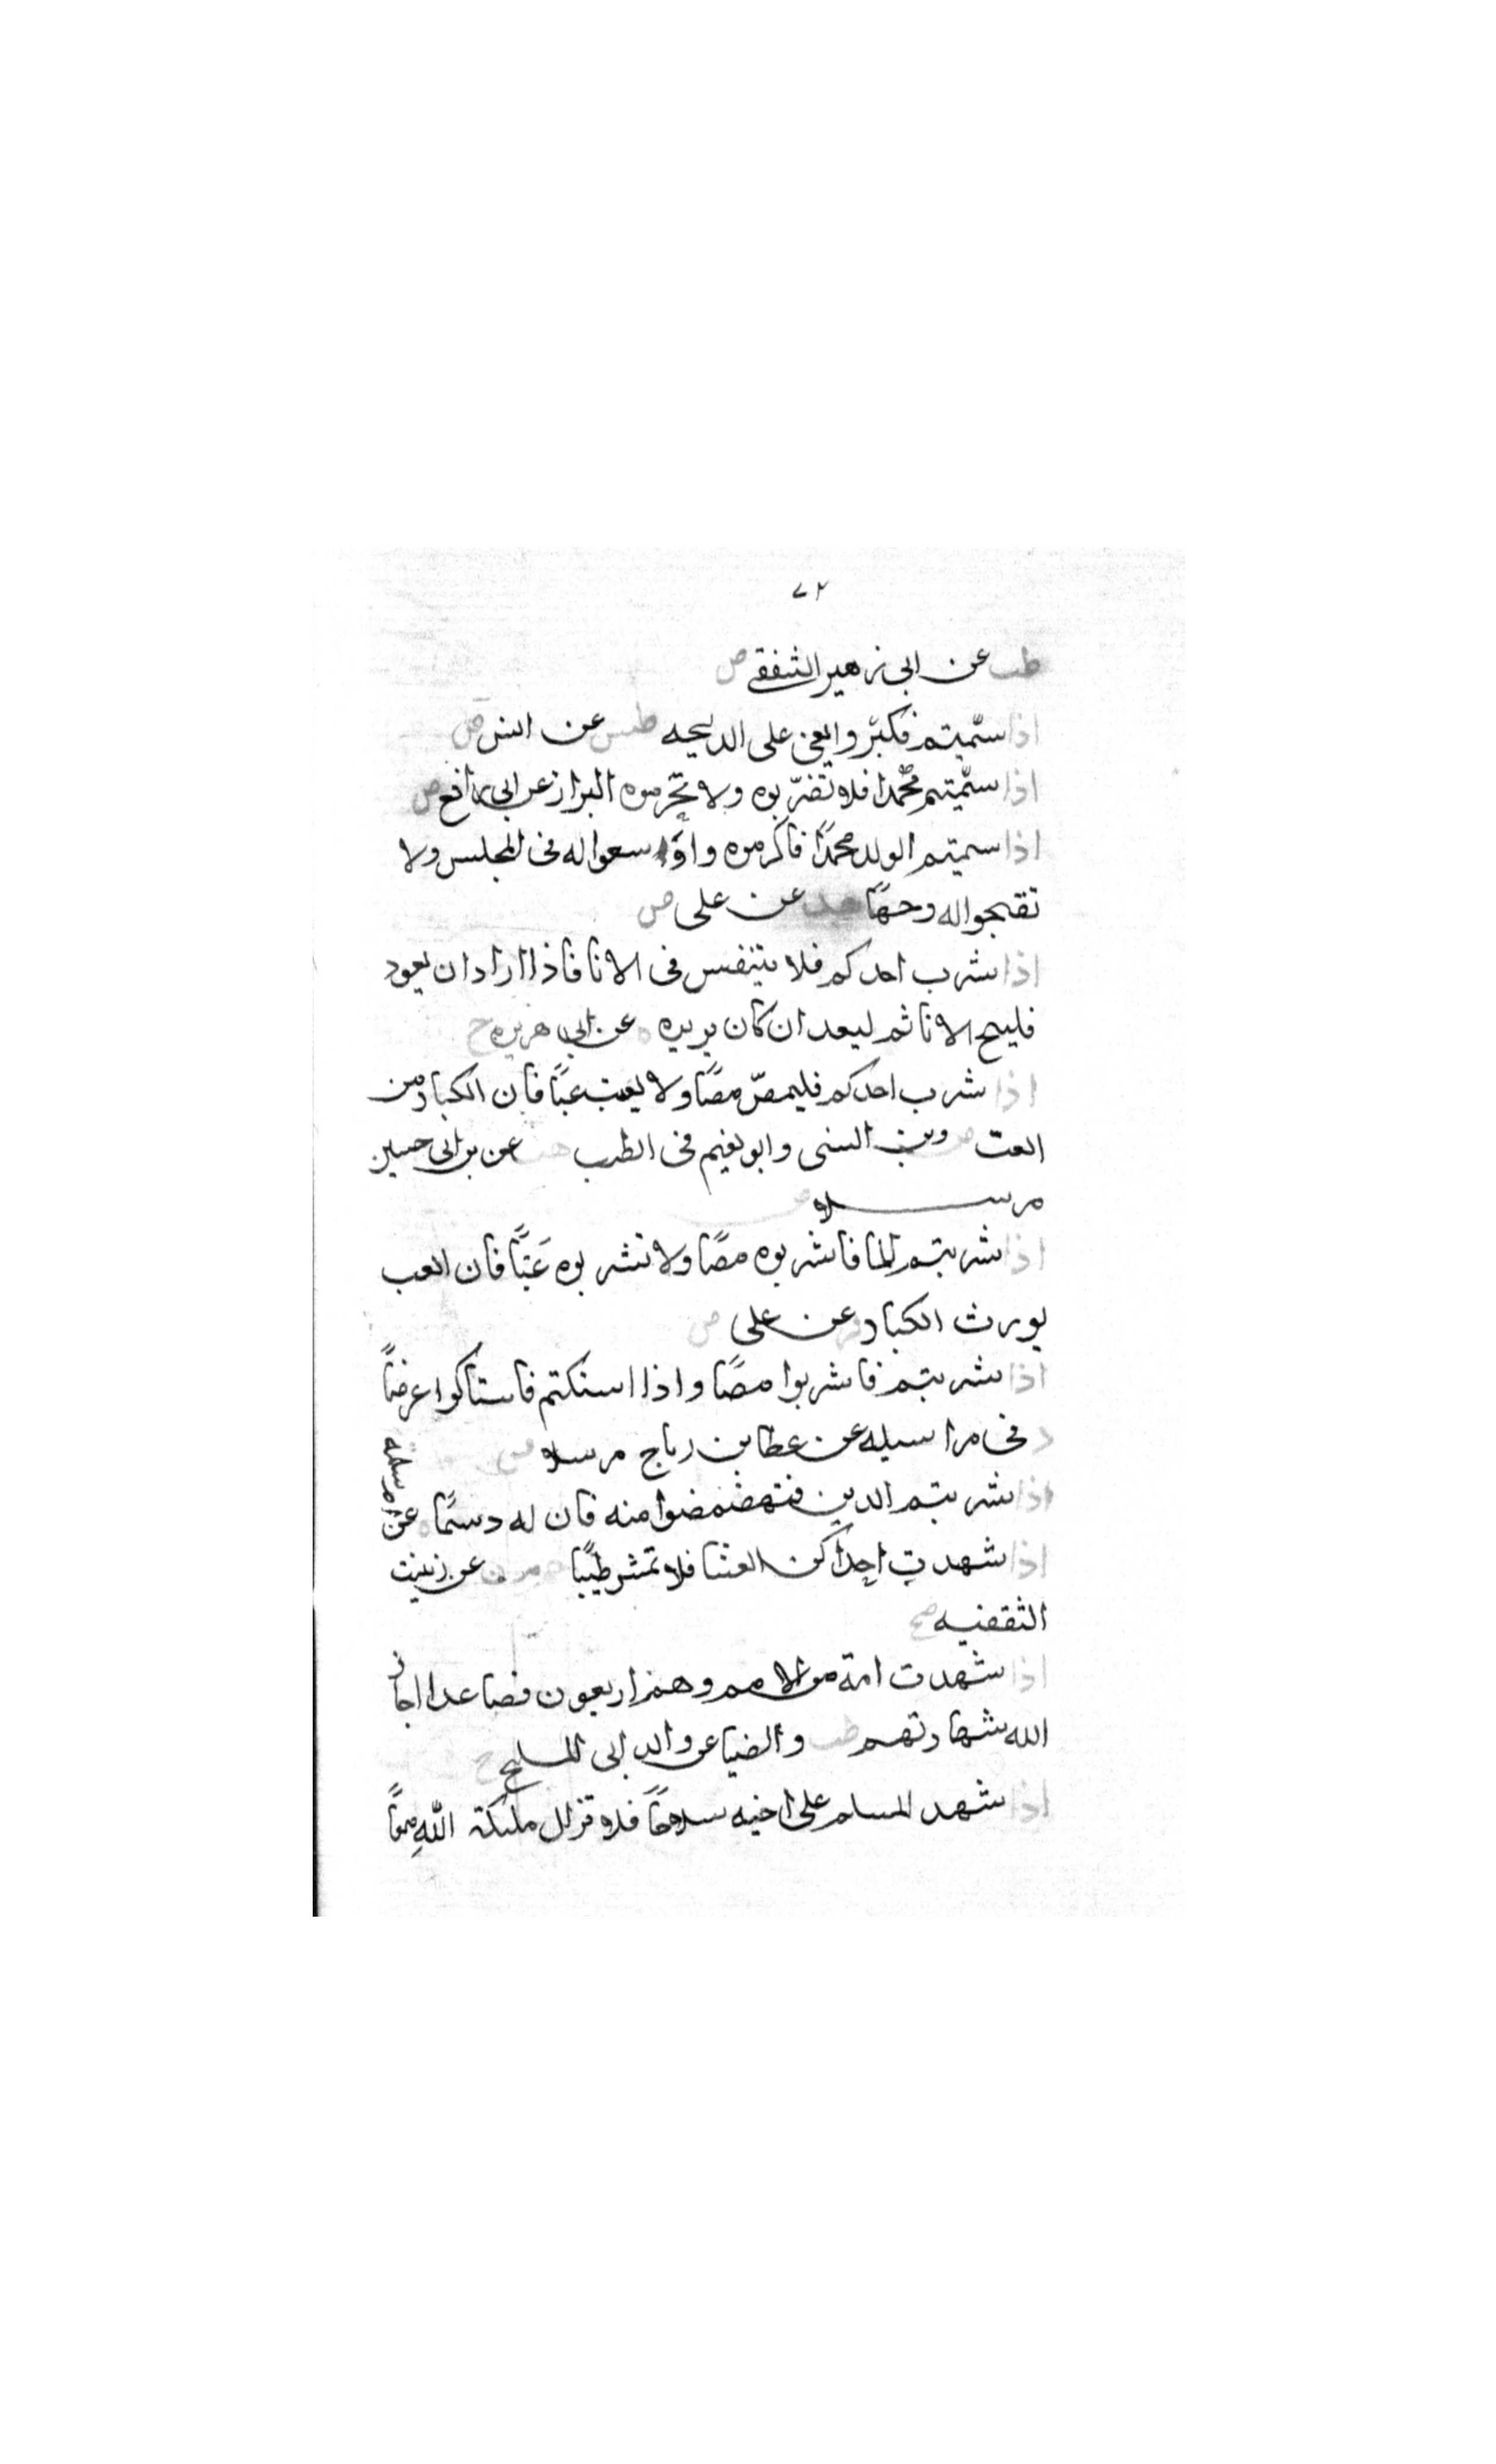 ٧٢
طب عن ابى زهير الثقفى ض
اذا سمّيتم فكبّروا يعنى على الدبيحه طس عن انس ض
اذا سمّيتم محمّدا فلا تضرّبوه ولا تحرموه البزار عن ابى رافع ض
اذا سميتم الولد محمدًا فاكرموه واوسعوا له فى المجلس ولا
تقبحوا له وجهًا عن على ض
اذا شرب احدكم فلا يتنفس فى الانا فاذا اراد ان يعود
فلينح الانا ثم ليعد ان كان يريده ه عن ابى هريره ح
اذا شرب احدكم فليمصّ مصًا ولا يعب عبًا فان الكباد من
العب ص وبن السنى وابو نعيم فى الطب هب عن بن ابى حسين
مرسلا
اذا شربتم الما فاشربوه مصًا ولا تشربوه عَبًّا فان العب
يورث الكباد فر عن على ض
اذا شربتم فاشربوا مصًا واذا استكتم فاستاكوا عرضًا
د فى مراسيله عن عطا بن رباح مرسلا ض
اذا شربتم اللبن فتمضمضوا منه فان له دسمًا ه عن ام سلمة
اذا شهدت احداكن العشا فلا تمس طيبًا حم م ن عن زينب
الثقفيه صح
اذا شهدت امة من الامم وهم اربعون فصاعدا اجاز
الله شهادتهم طب والضيا عن والد ابى المليح ح
اذا شهد المسلم على اخيه سلاحًا فلا تزال مليكة اللّهِ